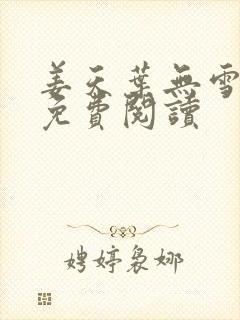 姜天葉無雪
免費閱讀
娉婷裊娜